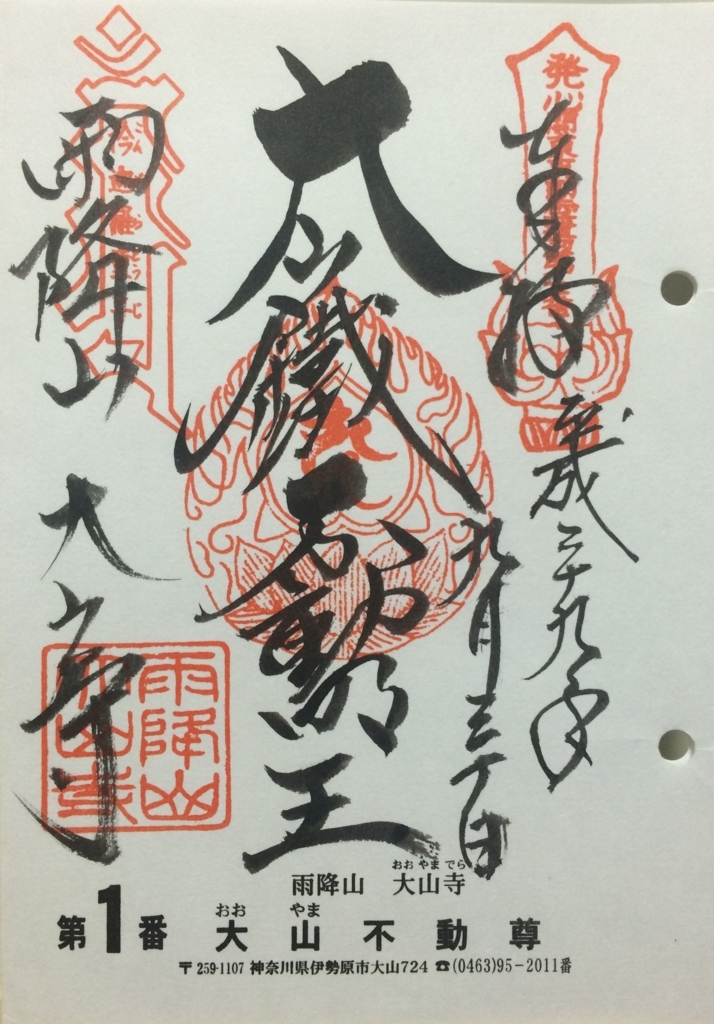 奉拝
平成二十九年
九月三十日
大山鐵不動明王
雨降山 大山寺
雨降山
大山寺
おおやまでら
雨降山 大山寺
おお やま
第1番 大山不動尊
〒259-1107 神奈川県伊勢原市大山724 ☎(0463)95-2011番